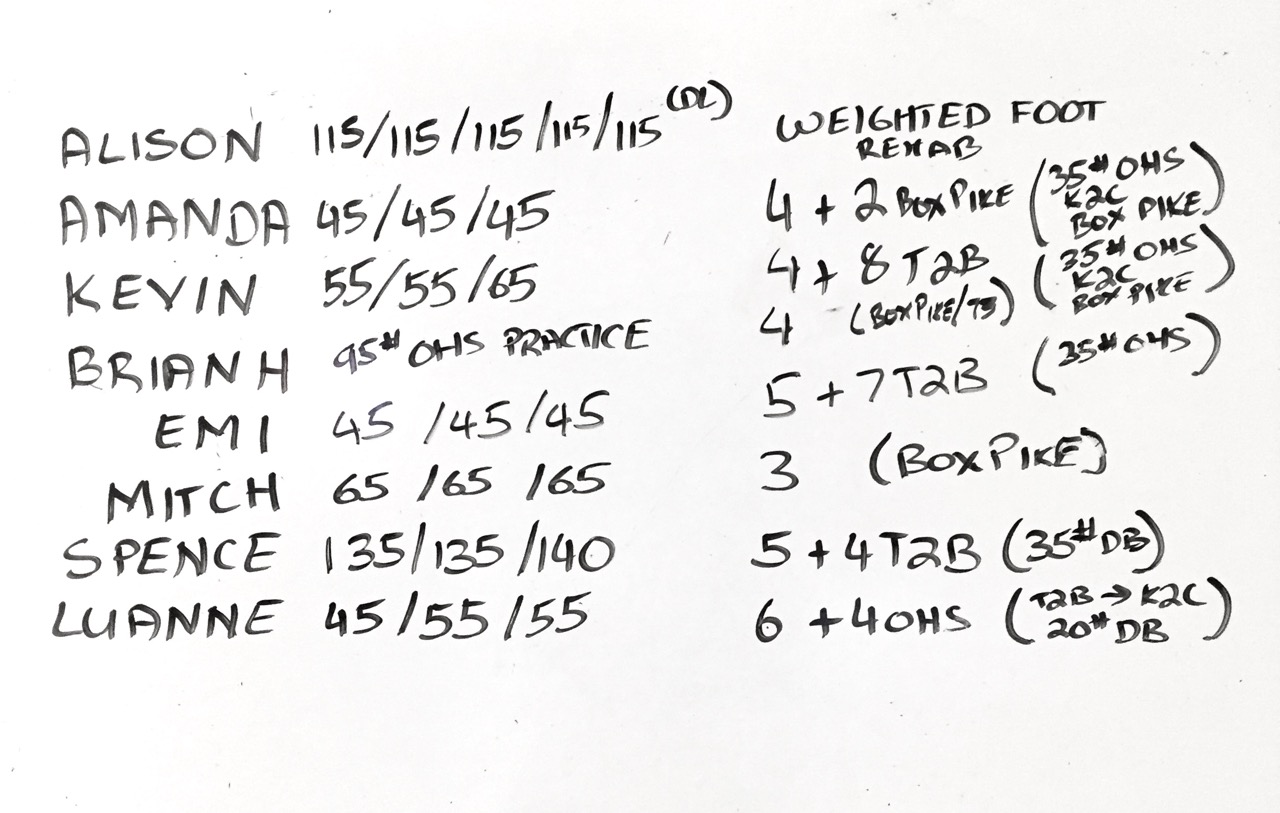 ALISON 115/115/115/115/115 (DL) WEIGHTED FOOT
REHAB
AMANDA 45/45/45 4 + 2 BOX PIKE (35# OHS
K2C
BOX PIKE)
KEVIN 55/55/65 4 + 8 T2B (35# OHS
K2C
BOX PIKE)
BRIAN H 95# OHS PRACTICE 4 (BOX PIKE/T3)
EMI 45/45/45 5 + 7 T2B (35# OHS)
MITCH 65/65/65 3 (BOX PIKE)
SPENCE 135/135/140 5 + 4 T2B (35# DB)
LUANNE 45/55/55 6 + 4 OHS (T2B → K2C
20# DB)